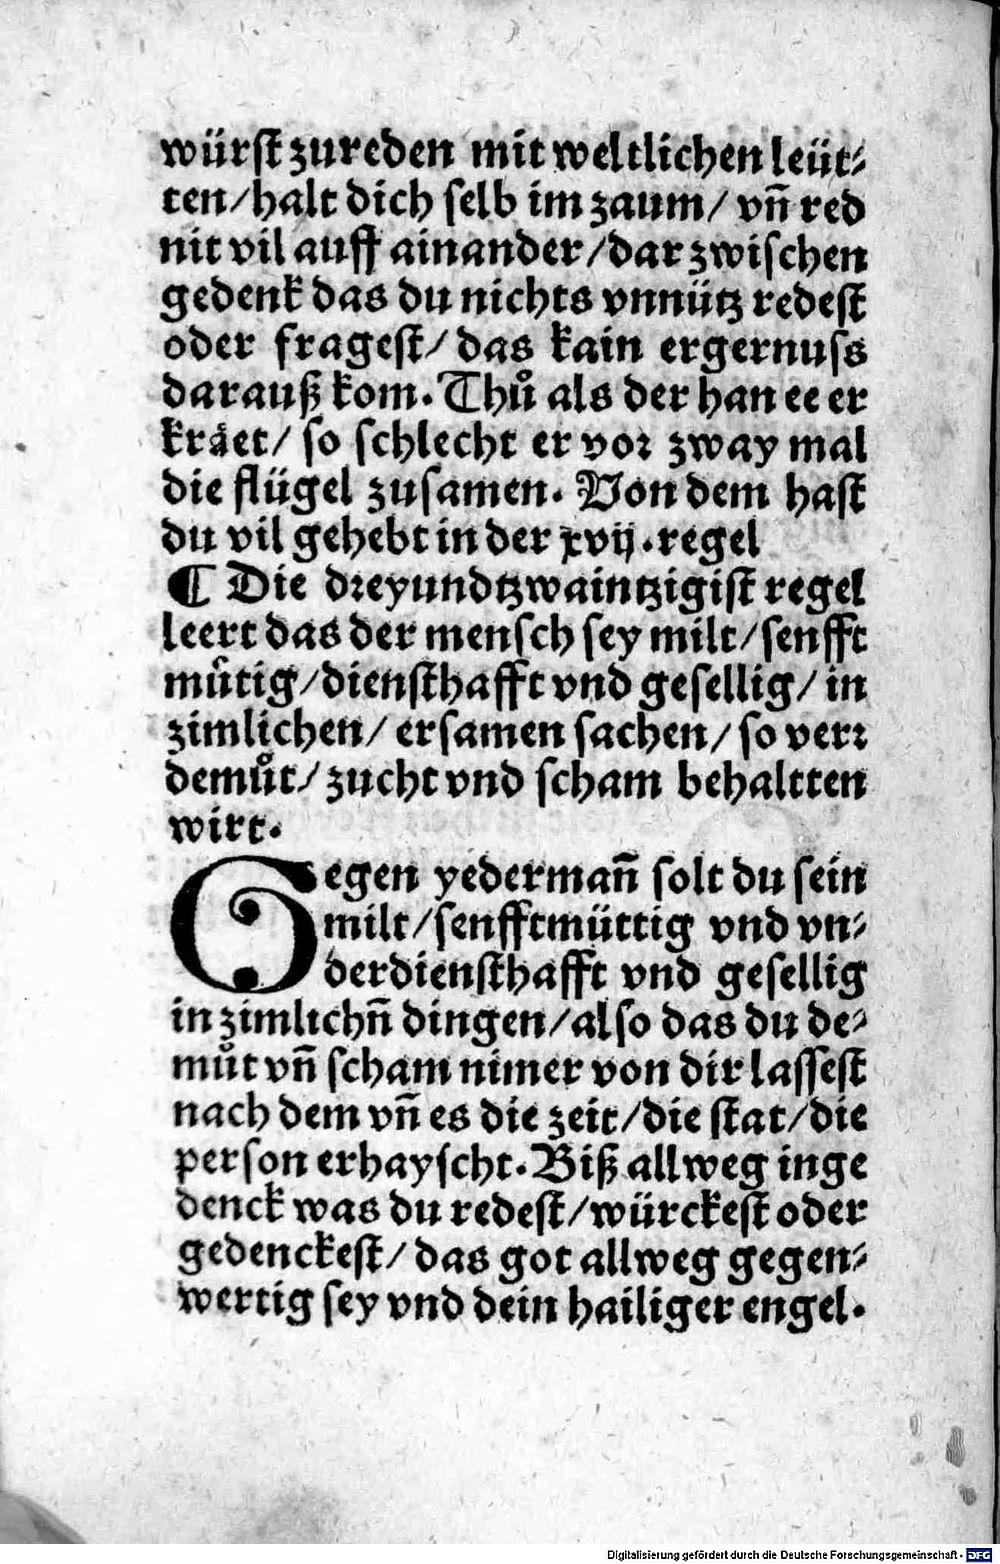 würſt zureden mit weltlichen leüt⸗
ten/halt dich ſelb im zaum/ vn̄ red
nit vil auff ainander/dar zwiſchen
gedenk das du nichts vnnütz redeſt
oder frageſt/ das kain ergernuſs
darauß kom. Thuͦ als der han ee er
kräet/ ſo ſchlecht er voꝛ zway mal
die flügel zuſamen. Von dem haſt
du vil gehebt in der xvij.regel
¶ Die dꝛeyundtzwaintzigiſt regel
leert das der menſch ſey milt/ſenfft
muͤtig/dienſthafft vnd geſellig/ in
zimlichen/ erſamen ſachen/ ſo verꝛ
demuͦt/ zucht vnd ſcham behaltten
wirt.
Gegen yederman̄ ſolt du ſein
milt/ſenfftmüttig vnd vn⸗
derdienſthafft vnd geſellig
in zimlichn̄ dingen/alſo das du de⸗
muͦt vn̄ ſcham nimer von dir laſſeſt
nach dem vn̄ es die zeit/die ſtat/die
perſon erhayſcht. Biß allweg inge
denck was du redeſt/würckeſt oder
gedenckeſt/ das got allweg gegen⸗
wertig ſey vnd dein hailiger engel.
Digitalisierung gefördert durch die Deutsche Forschungsgemeinschaft - DFG